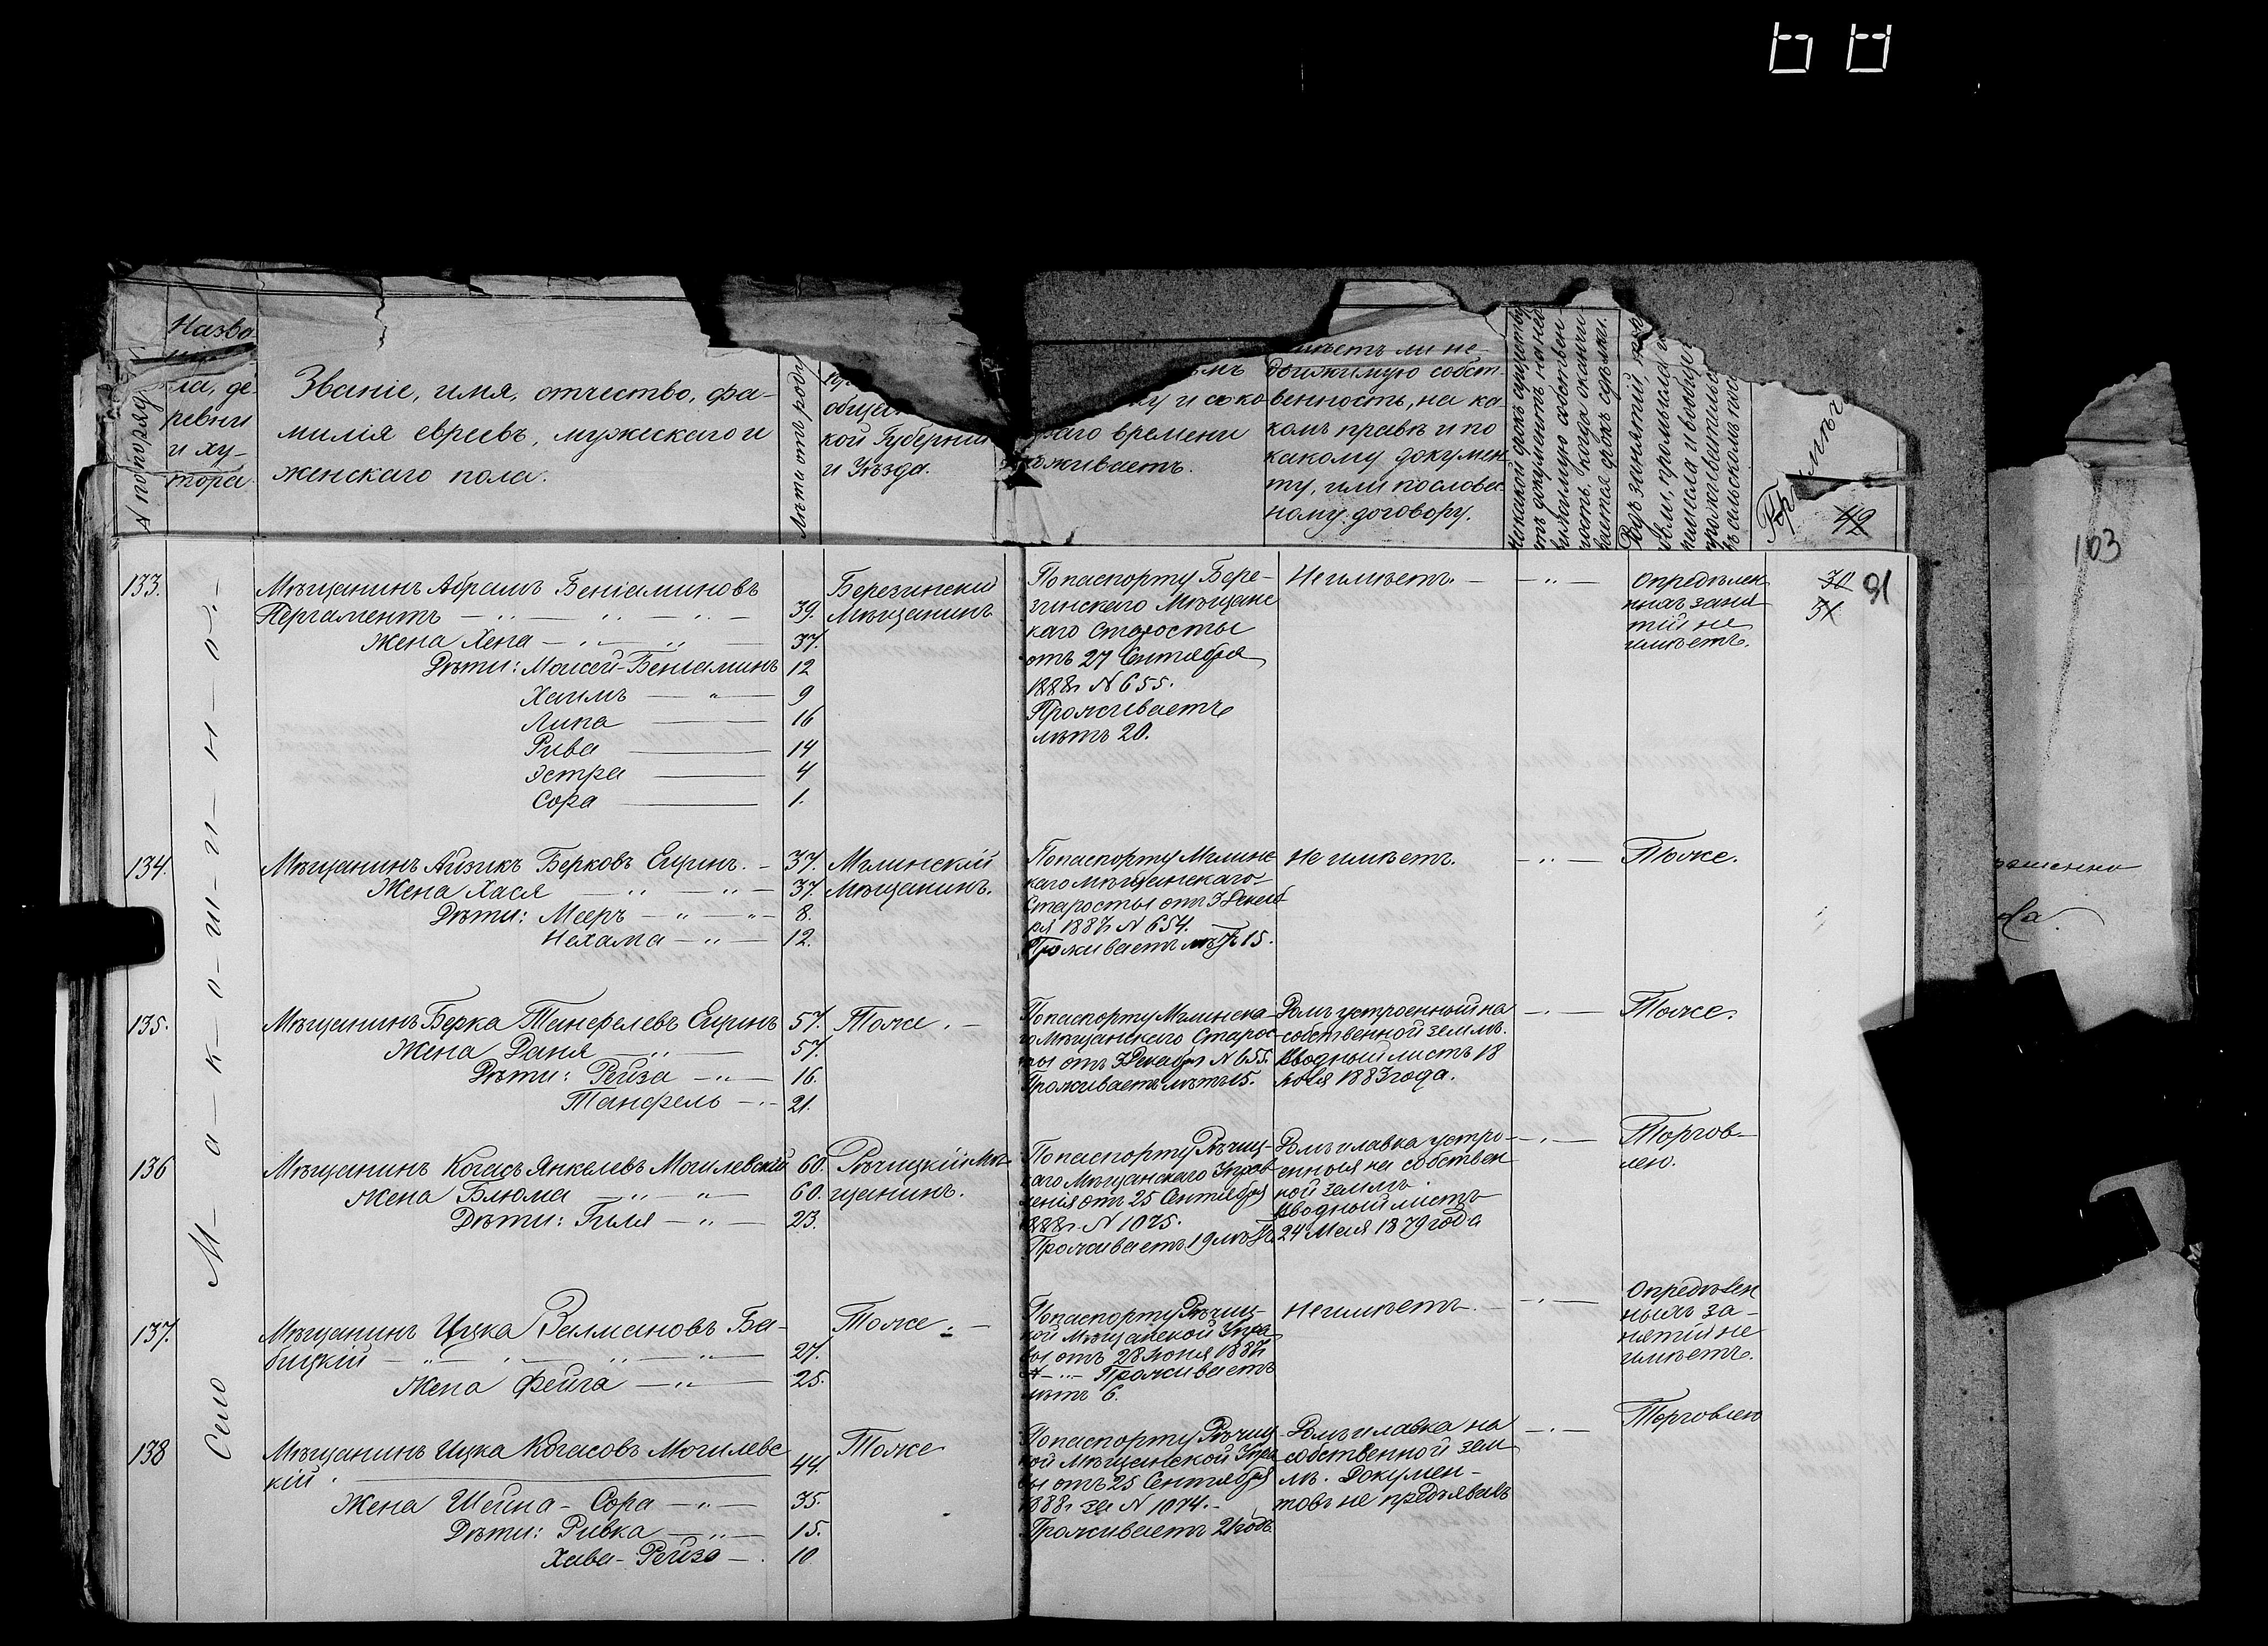 Назва
ла, де-
ревни
и ху-
тора.
№ по порядку
Званіе, имя, отчество, фа-
милія евреевъ, мужескаго и
женскаго пола.
Лѣти отъ роду
общес
кой Губерніи
и Уѣзда.
раго времени
живаетъ.
имѣетъ ли не-
движимую собст-
венность, на ка-
комъ правѣ и по
какому докумен
ту, или пословес
ному договору.
На какой срокъ существу
етъ документъ на нед
вижимую собствен-
ность, когда оканчи
вается срокъ сдѣлки.
Родъ занятій,
42
103
Село М-а-к-о-ш-и-н-о.
133.
Мѣщанинъ Абрамъ Беніаминовъ
Пергаментъ 39.
Жена Хена 37.
Дѣти: Моисей-Беніаминъ 12
Хаимъ 9
Липа 16
Рива 14
Эстра 4
Сора 1.
Березинскій
Мѣщанинъ
По паспорту Бере-
зинскаго Мѣщанс
каго Старосты
отъ 27 Сентября
1888г. № 655.
Проживаетъ
лѣтъ 20.
Не имѣетъ.
Опредѣлен
ныхъ заня
тій не
имѣетъ.
30
31
91
134.
Мѣщанинъ Айзикъ Берковъ Ситинъ. 37.
Жена Хася 37.
Дѣти: Мееръ 8.
Нехама 12.
Мглинскій
Мѣщанинъ.
По паспорту Мглинс
каго Мѣщанскаго
Старосты отъ 3 Декаб
ря 1887г. № 654.
Проживаетъ лѣтъ 15.
Не имѣетъ.
Тоже.
135.
Мѣщанинъ Берка Танфелевъ Ситинъ 57.
Жена Даня 57.
Дѣти: Рейза 16.
Танфель 21.
Тоже.
По паспорту Мглинска-
го Мѣщанскаго Старос-
ты отъ 3 Декабря № 655.
Проживаетъ лѣтъ 15.
Домъ устроенный на
собственной землѣ.
Вводный листъ 18
1883 года.
Тоже.
136
Мѣщанинъ Когасъ Янкелевъ Могилевскій 60.
Жена Блюма 60.
Дѣти: Гиля 23.
Рѣчицкій Мѣ-
щанинъ.
По паспорту Рѣчиц-
каго Мѣщанскаго Управ
ленія отъ 25 Сентября
1888г. № 1075.
Проживаетъ 19 лѣтъ
Домъ и лавка устро-
енныя на собствен
ной землѣ.
Вводный листъ
24 Мая 1879 года
Торгов-
лею.
137.
Мѣщанинъ Ицка Залмановъ Ба-
бицкій 27.
Жена Фейга 25.
Тоже.
По паспорту Рѣчиц-
кой Мѣщанской Упра
вы отъ 28 Іюня 1887г.
Проживаетъ
лѣтъ 6.
Не имѣетъ.
Опредѣлен
ныхъ за-
нятій не
имѣетъ.
138
Мѣщанинъ Ицка Когасовъ Могилевс
кій 44.
Жена Шейна-Сора 35.
Дѣти: Ривка 15.
Хава-Рейза 10
Тоже
По паспорту Рѣчиц
кой Мѣщанской Упра
вы отъ 25 Сентября
1888г. за № 1074.
Проживаетъ 21 годъ.
Домъ и лавка на
собственной зем
лѣ. Докумен-
товъ не предъявилъ
Торговлею